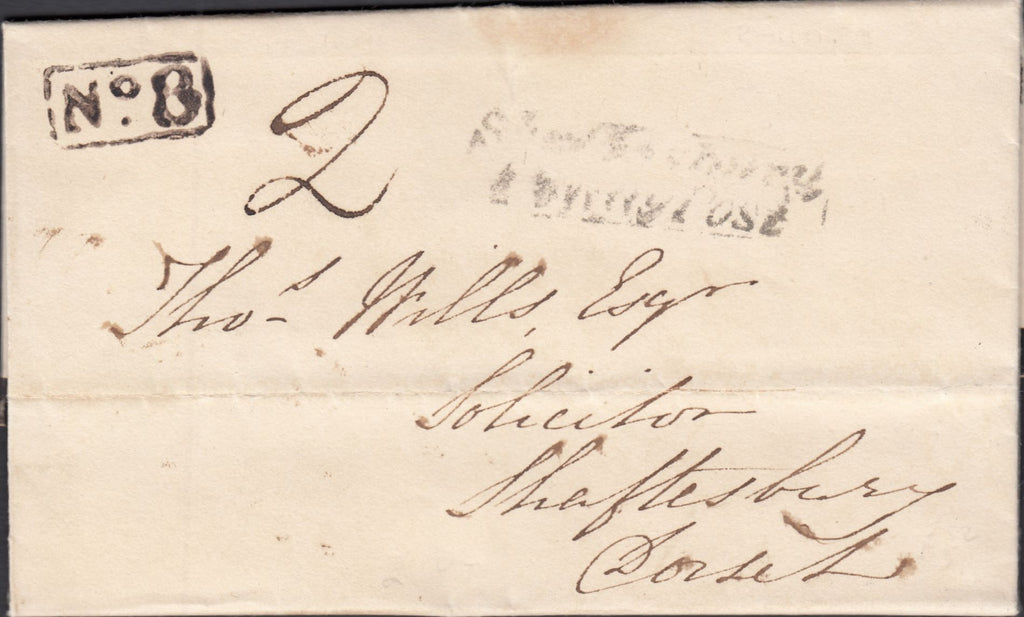 No. 8
2
Shaftesbury
Penny Post
Thos Wills, Esqr
Solicitor
Shaftesbury
Dorset